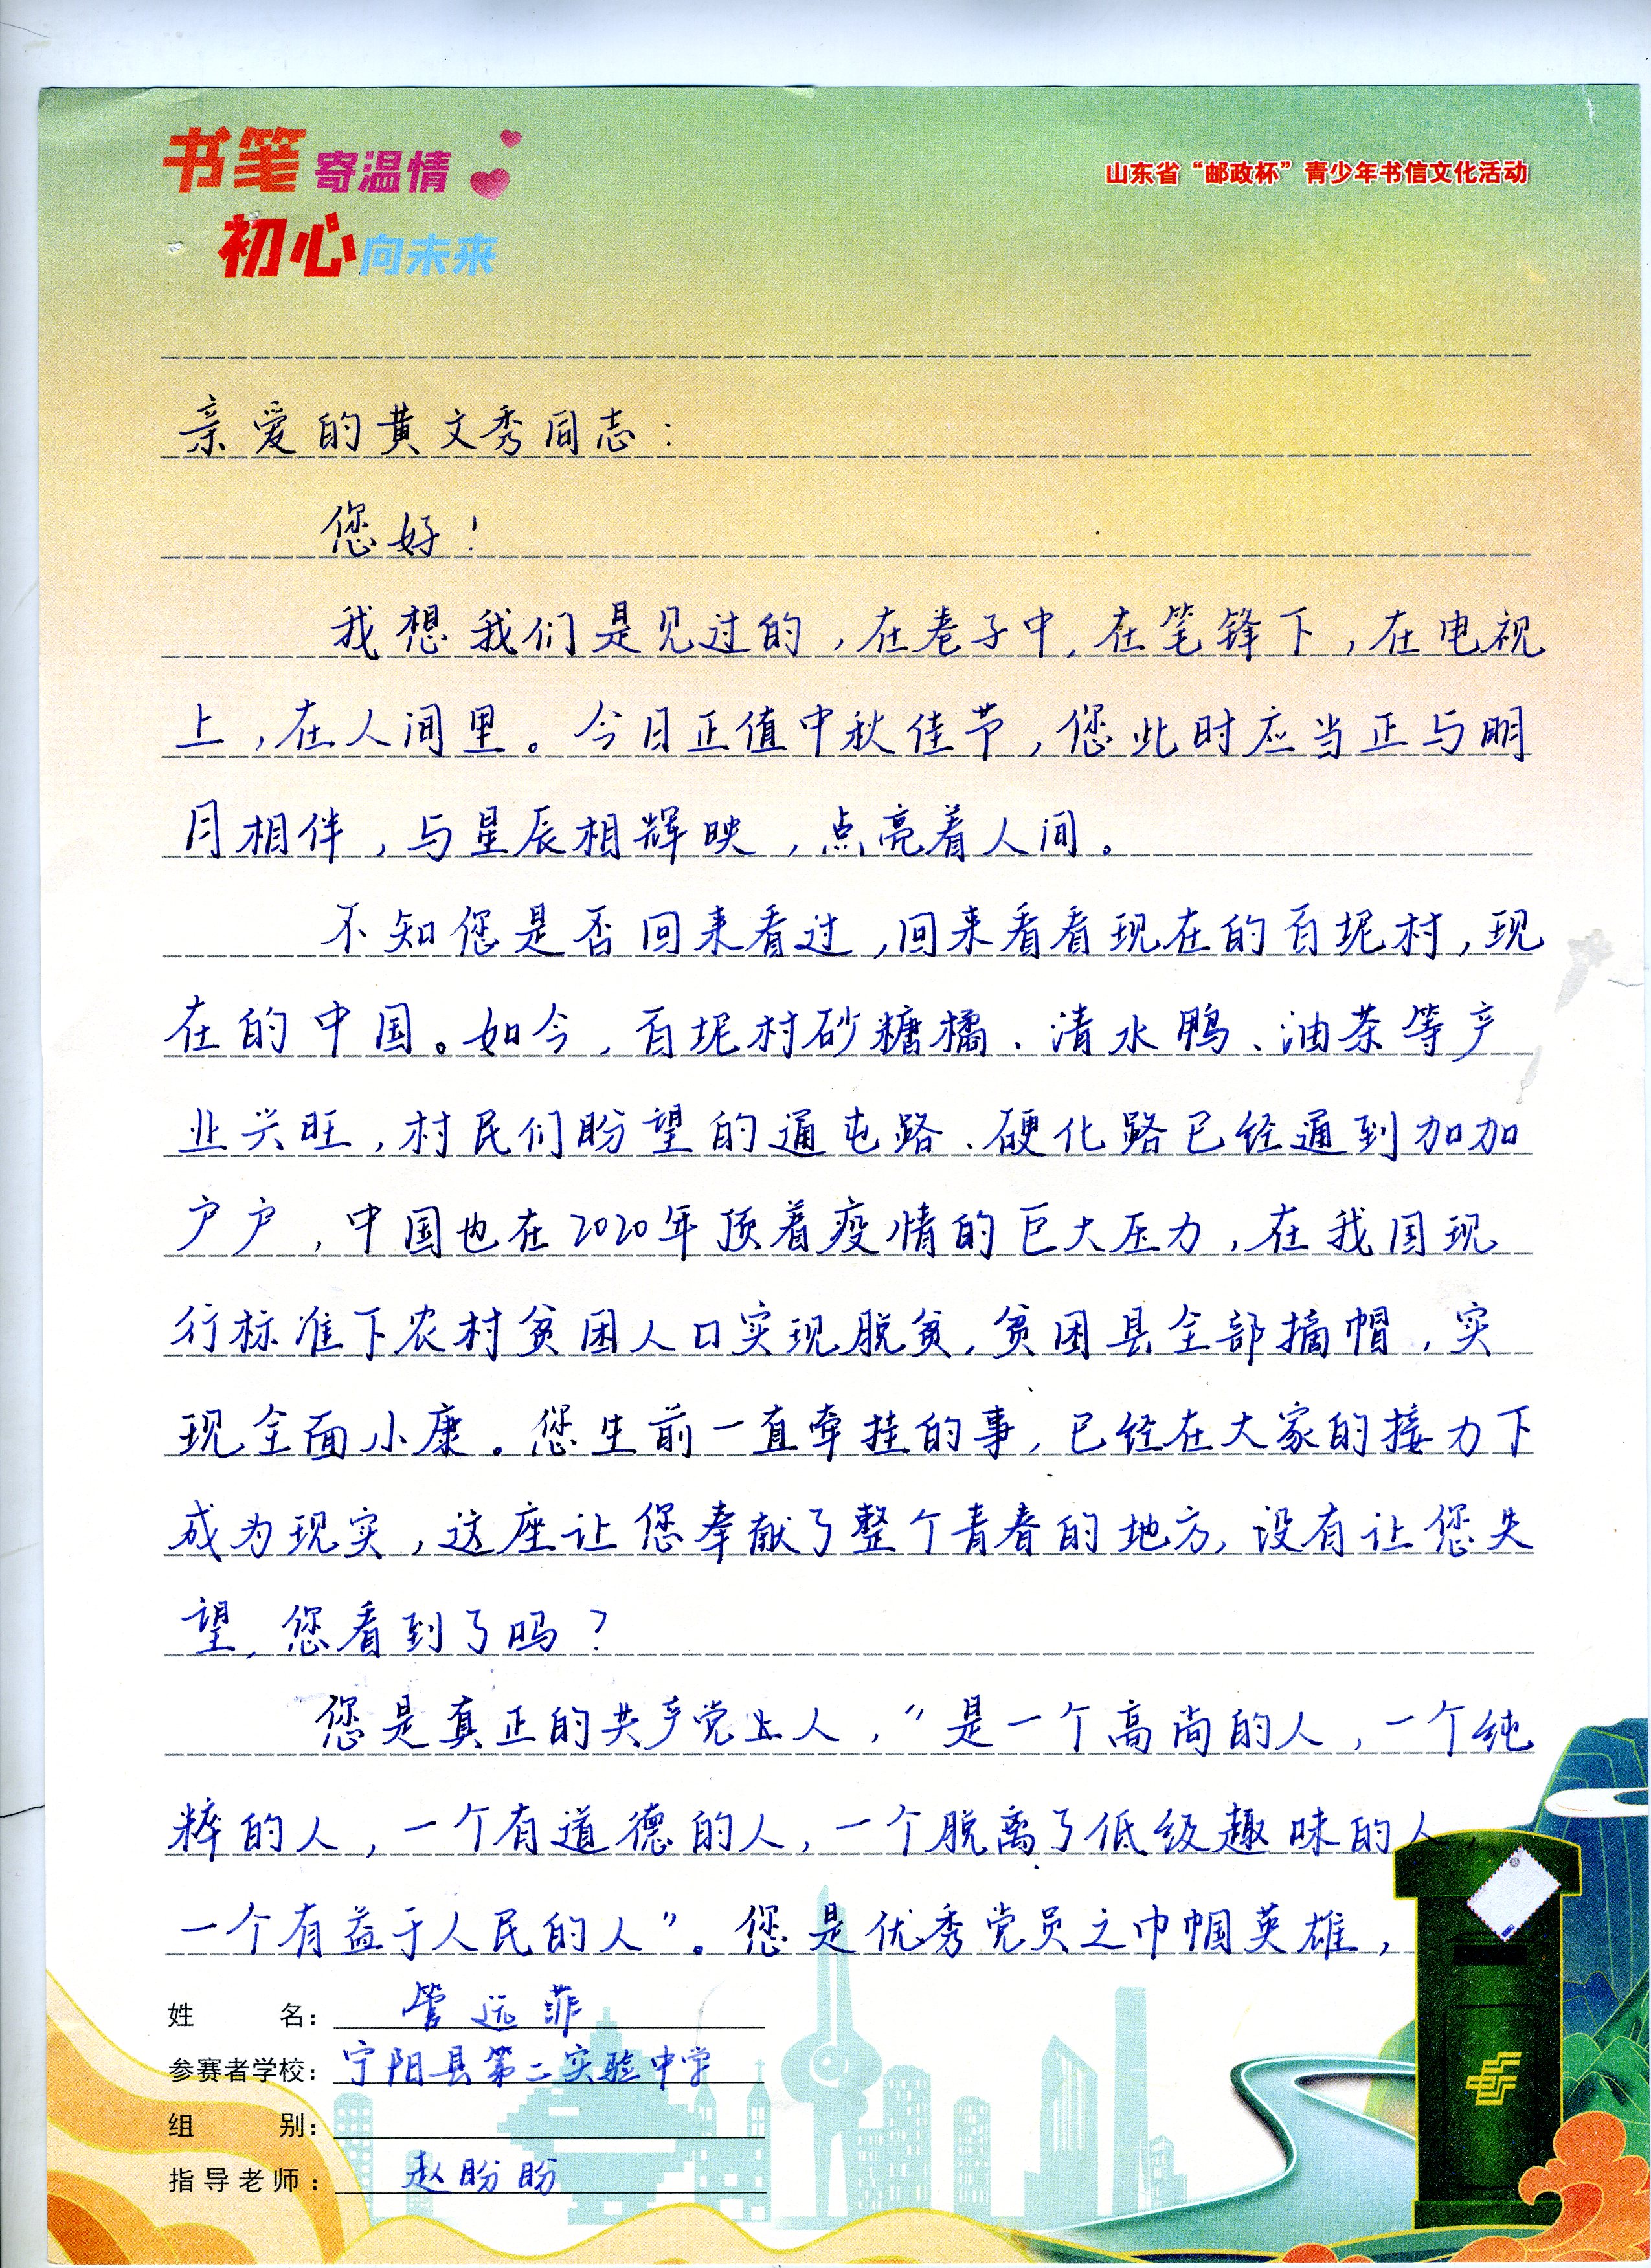 书笔寄温情
初心向未来
山东省“邮政杯”青少年书信文化活动
亲爱的黄文秀同志：
您好！
我想我们是见过的，在卷子中，在笔锋下，在电视
上，在人间里。今日正值中秋佳节，您此时应当正与明
月相伴，与星辰相辉映，点亮着人间。
不知您是否回来看过，回来看看现在的百坭村，现
在的中国。如今，百坭村砂糖橘、清水鸭、油茶等产
业兴旺，村民们盼望的通屯路、硬化路已经通到加加
户户，中国也在2020年顶着疫情的巨大压力，在我国现
行标准下农村贫困人口实现脱贫，贫困县全部摘帽，实
现全面小康。您生前一直牵挂的事，已经在大家的接力下
成为现实，这座让您奉献了整个青春的地方，没有让您失
望，您看到了吗？
您是真正的共产党人，“是一个高尚的人，一个纯
粹的人，一个有道德的人，一个脱离了低级趣味的人，
一个有益于人民的人”。您是优秀党员之巾帼英雄，
姓名：管远菲
参赛者学校：宁阳县第二实验中学
组别：
指导老师：赵盼盼